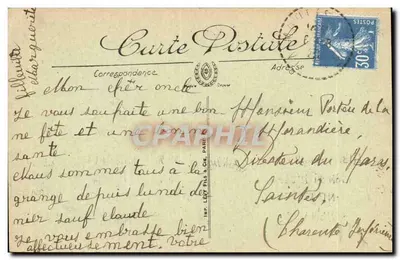 Carte Postale
Correspondance
Adresse
Mon cher oncle
Je vous souhaite une bon
ne fête et une bonne
santé.
Nous sommes tous à la
grange depuis lundi der
nier sauf Claude
Je vous embrasse bien
affectueusement. Votre
filleule
Marguerite
Monsieur
de la
Morandière
Directeur du Haras
Saintes
(Charente Inférieure
POSTES
30c
CPAPHIL
IMP. LEVY FILS & Cie PARIS